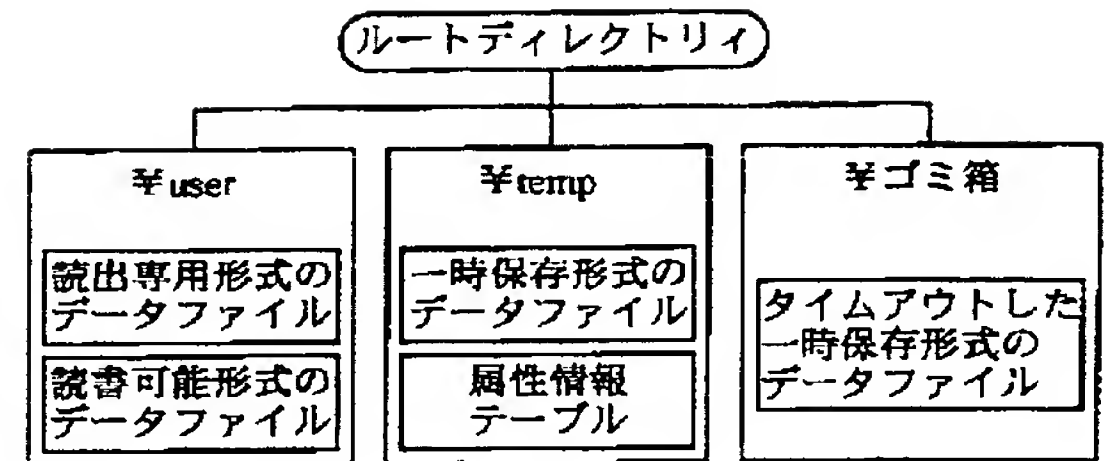 ルートディレクトリィ
¥user
¥temp
¥ゴミ箱
読出専用形式の
データファイル
読書可能形式の
データファイル
一時保存形式の
データファイル
属性情報
テーブル
タイムアウトした
一時保存形式の
データファイル